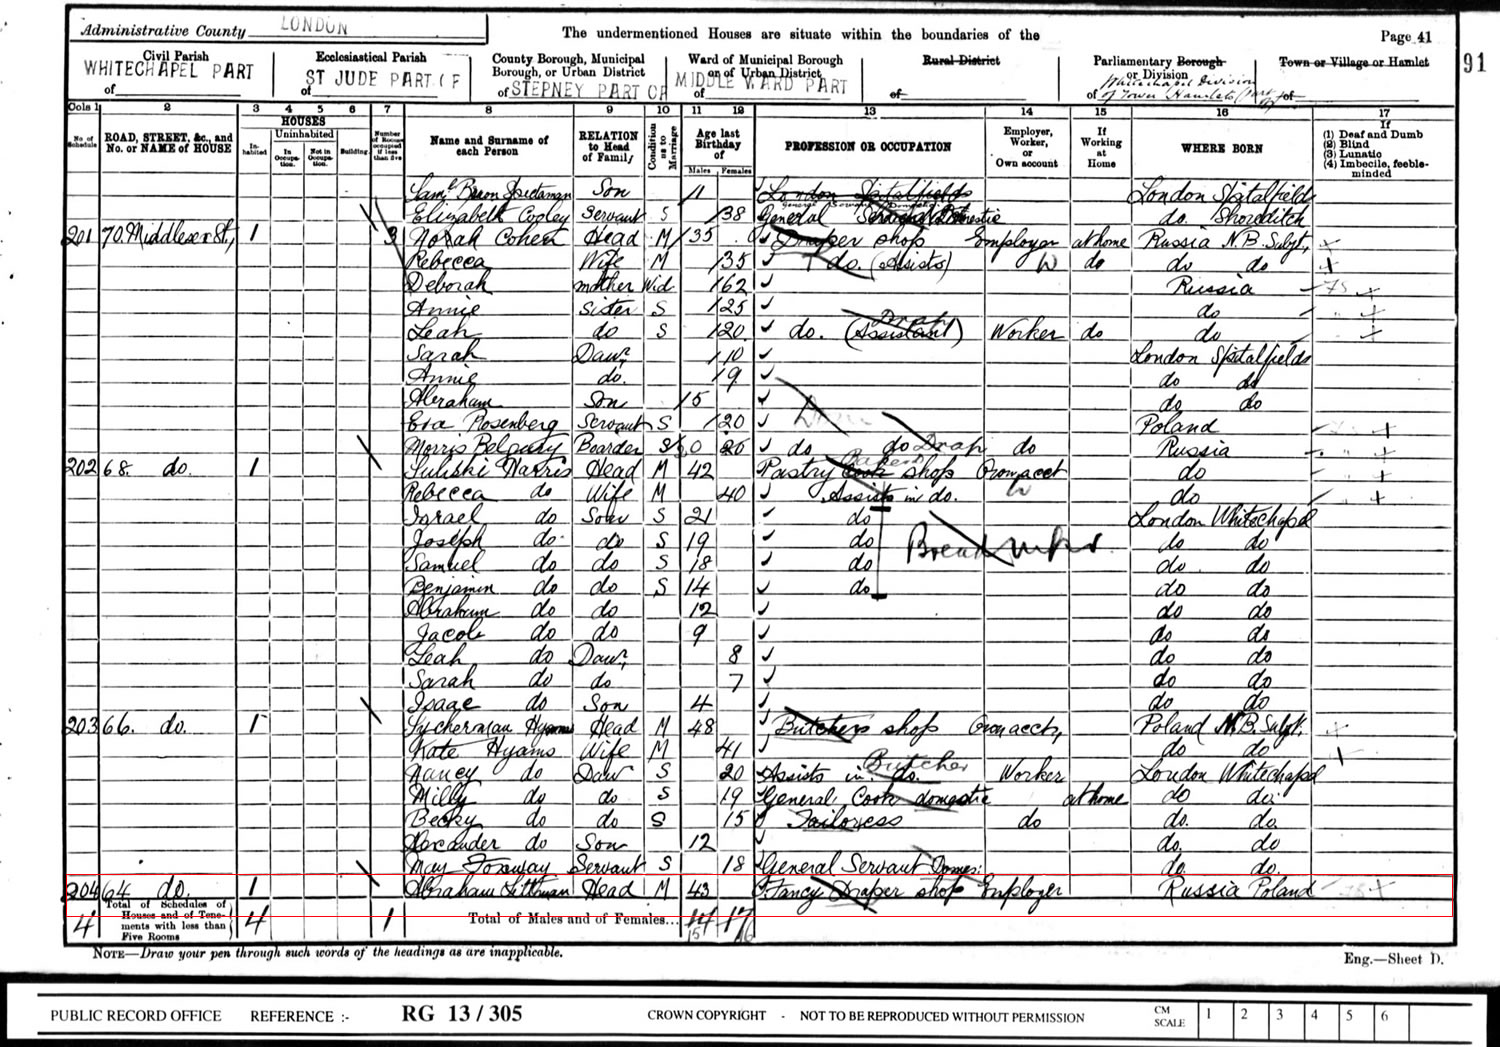 Administrative County LONDON The undermentioned Houses are situate within the boundaries of the Page 41
91
Civil Parish Ecclesiastical Parish County Borough, Municipal Borough, or Urban District Ward of Municipal Borough or of Urban District Rural District Parliamentary Borough or Division Town or Village or Hamlet
of WHITECHAPEL PART of ST JUDE PART OF of STEPNEY PART OF of MIDDLE WARD PART of of Whitechapel Division of Tower Hamlets (part of) of
Cols 1 2 3 4 5 6 7 8 9 10 11 12 13 14 15 16 17
No. of Schedule ROAD, STREET, &c., and No. or NAME of HOUSE HOUSES Inhabited Uninhabited In Occupation. Not in Occupation. Building. Number of Rooms occupied if less than five Name and Surname of each Person RELATION to Head of Family Condition as to Marriage Age last Birthday of Males Females PROFESSION OR OCCUPATION Employer, Worker, or Own account If Working at Home WHERE BORN If (1) Deaf and Dumb (2) Blind (3) Lunatic (4) Imbecile, feeble-minded
Saml Son 11 London Spitalfields London Spitalfields
Elizabeth Copley Servant S 38 General Servant Domestic do. Shoreditch
201 70. Middlesex St, 1 3 Norah Cohen Head M 35 Draper shop Employer at home Russia N.B. Subjt,
Rebecca Wife M 35 do. (Assists) W do do do
Deborah mother Wid 62 Russia
Annie Sister S 25 do
Leah do S 20 do. (Assistant) Drap Worker do do
Sarah Daur 10 London Spitalfields
Annie do. 9 do do
Abraham Son 5 do do
Eva Rosenberg Servant S 20 Poland
Morris Boarder S 20 do do Drap do Russia
202 68. do. 1 Harris Head M 42 Pastry Cook shop Own acct do
Rebecca do Wife M 40 Assists in do. W do
Israel do Son S 21 do London Whitechapel
Joseph do do S 19 do do do
Samuel do do S 18 do do do
Benjamin do do S 14 do do do
Abraham do do 12 do do
Jacob do do 9 do do
Leah do Daur, 8 do do
Sarah do do 7 do do
Isaac do Son 4 do do
203 66. do. 1 Hyams Head M 48 Butchers shop Own acct, Poland N.B. Subjt,
Kate Hyams Wife M 41 do do
Nancy do Daur S 20 Assists in do. Butcher Worker London Whitechapel
Milly do do S 19 General Cook domestic at home do do.
Becky do do S 15 Tailoress do do. do,
Alexander do Son 12 do, do,
May Servant S 18 General Servant Domes: do. do.
204 64 do. 1 Abraham Littman Head M 43 Fancy Draper shop Employer Russia Poland
4 Total of Schedules of Houses and of Tenements with less than Five Rooms 4 1 Total of Males and of Females... 14 17
15 16
NOTE—Draw your pen through such words of the headings as are inapplicable. Eng.—Sheet D.
PUBLIC RECORD OFFICE REFERENCE :- RG 13 / 305 CROWN COPYRIGHT - NOT TO BE REPRODUCED WITHOUT PERMISSION CM SCALE 1 2 3 4 5 6